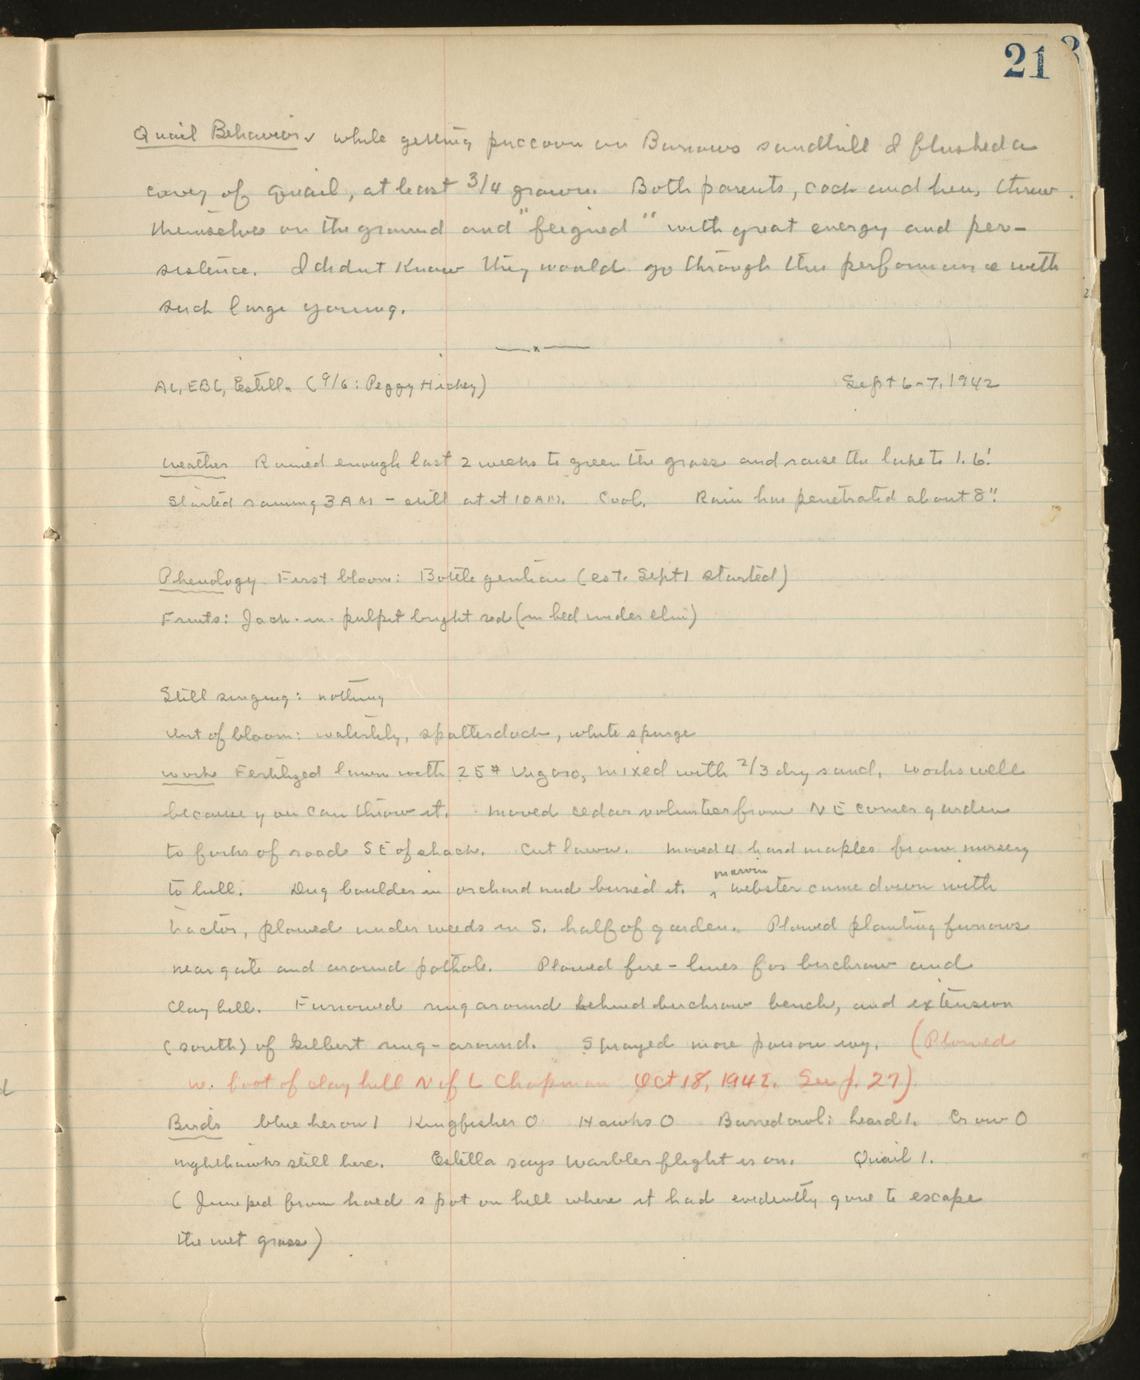 21
Quail Behavior. While getting puccoon on Barrows sandhill I flushed a
covey of quail, at least 3/4 grown. Both parents, cock and hen, threw
themselves on the ground and "feigned" with great energy and per-
sistence. I didnt know they would go through this performance with
such large young.
AL, EBL, Estella (9/6: Peggy Hickey) Sept 6-7, 1942
Weather Rained enough last 2 weeks to green the grass and raise the lake to 1.6!
Started raining 3 AM - still at it 10 AM. Cool. Rain has penetrated about 8".
Phenology First bloom: Bottle gentian (est. Sept 1 started)
Fruits: Jack-in-pulpit bright red (in bed under elm)
Still singing: nothing
Out of bloom: waterlily, spatterdock, white spurge
Work Fertilized lawn with 25# Vigoro, mixed with 2/3 dry sand. Works well
because you can throw it. Moved cedar volunteer from NE corner garden
to forks of road SE of shack. Cut lawn. Moved 4 hard maples from nursery
to hill. Dug boulder in orchard and buried it. Marvin Webster came down with
tractor, plowed under weeds in S. half of garden. Plowed planting furrows
near gate and around pothole. Plowed fire-lines for birchrow and
clay hill. Furrowed ring around behind birchrow bench, and extension
(south) of Gilbert ring-around. Sprayed more poison ivy. (Plowed
w. foot of clay hill N of L Chapman Oct 18, 1942. See p. 27)
Birds blue heron 1 Kingfisher 0 Hawks 0 Barred owl: heard 1. Crow 0
nighthawks still here. Estella says warbler flight is on. Quail 1.
(Jumped from hard spot on hill where it had evidently gone to escape
the wet grass)